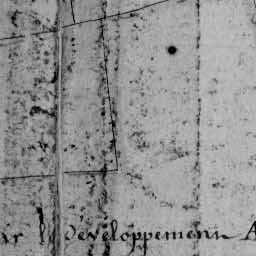 ar le développement A